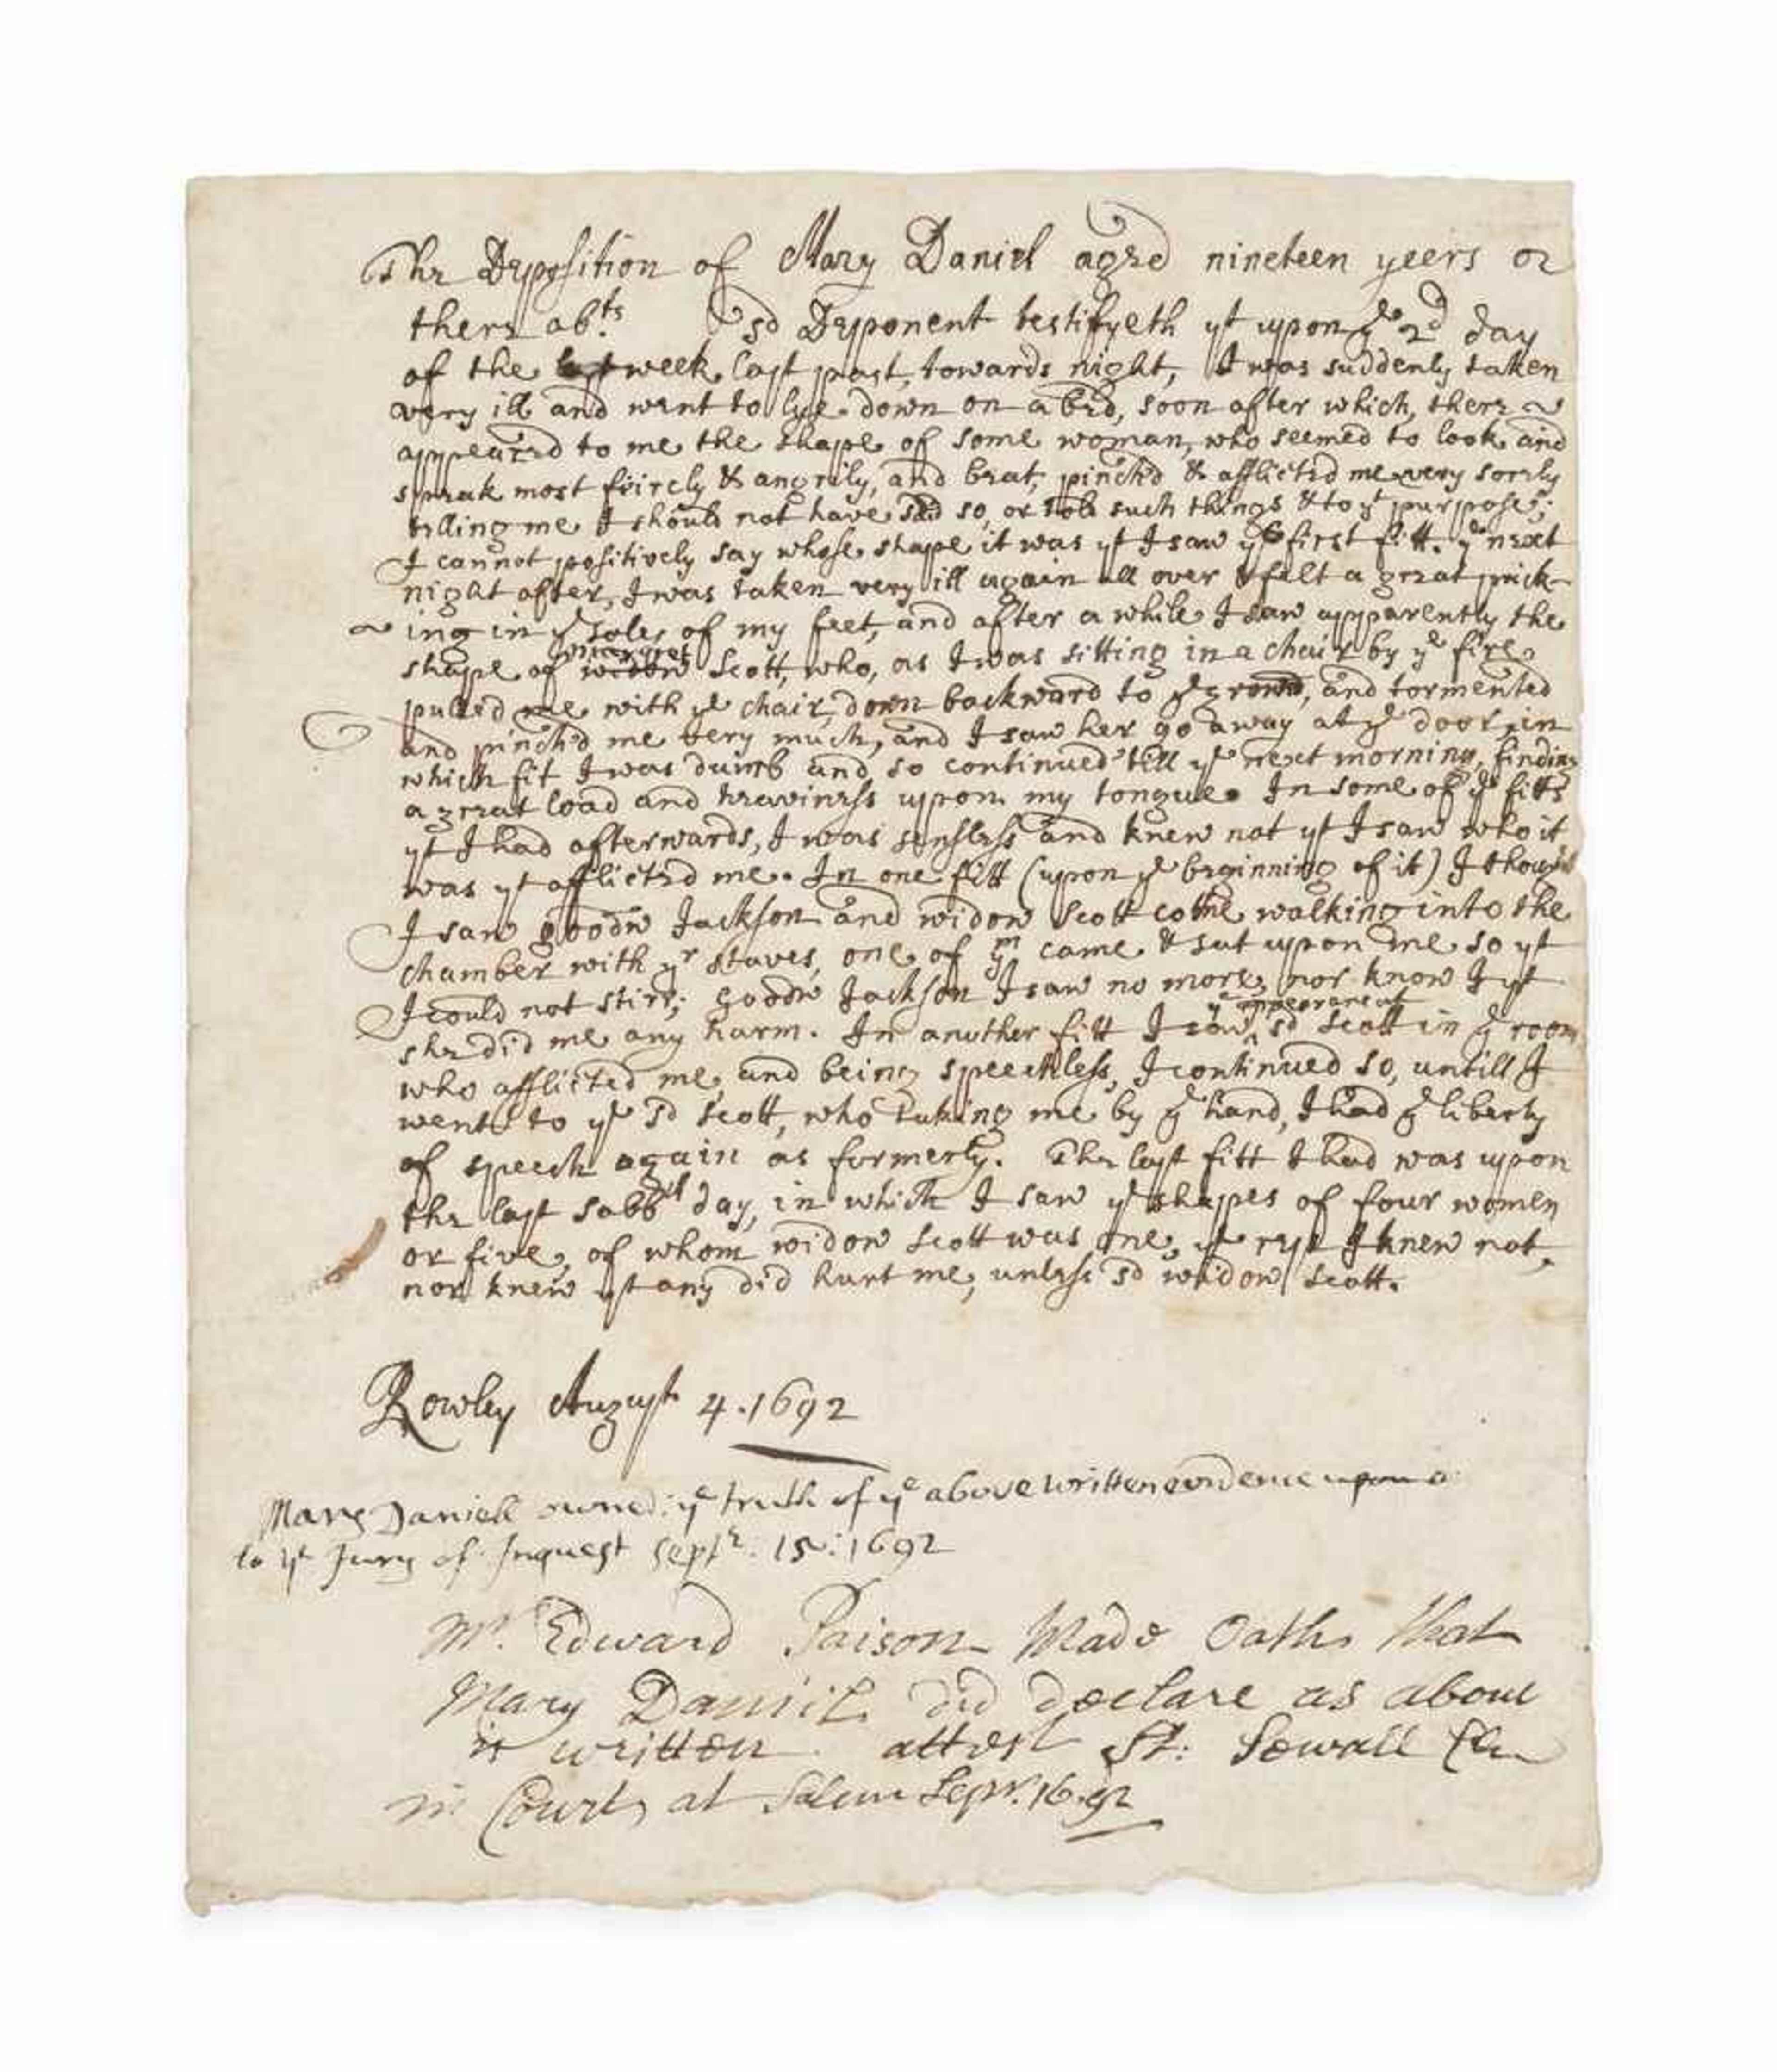 The Deposition of Mary Daniel aged nineteen yeers or
there abts. Ye sd Deponent testifyeth yt upon ye 2d day
of the week last past, towards night, I was suddenly taken
very ill and went to lye down on a bed, soon after which, there
appeared to me the shape of some woman, who seemed to look and
speak most feircly & angrily, and beat, pinch'd & afflicted me very sorely
telling me I should not have said so, or told such things & to yt purpose;
I cannot positively say whose shape it was yt I saw ye first fitt. ye next
night after, I was taken very ill again all over & felt a great prick-
ing in ye soles of my feet, and after a while I saw apparently the
shape of Margret Scott, who, as I was sitting in a chair by ye fire
pulled me with ye chair, down backward to ye ground, and tormented
and pinch'd me very much, and I saw her go away at ye door, in
which fit I was dumb and so continued till ye next morning, finding
a great load and heaviness upon my tongue. In some of ye fitts
yt I had afterwards, I was senseless and knew not yt I saw who it
was yt afflicted me. In one fitt (upon ye beginning of it) I thought
I saw goodw Jackson and widow Scott come walking into the
chamber with yr staves, one of ym came & sat upon me so yt
I could not stirr; goodw Jackson I saw no more, nor know I yt
she did me any harm. In another fitt I saw ye appearance of sd Scott in ye room
who afflicted me, and being speechless, I continued so, untill I
went to ye sd Scott, who taking me by ye hand, I had ye liberty
of speech again as formerly. The last fitt I had was upon
the last sabbth day, in which I saw ye shapes of four women
or five, of whom widow Scott was one, ye rest I knew not,
nor knew yt any did hurt me, unless sd widow Scott.
Rowley August 4. 1692
Mary Daniell owned: ye truth of ye above written evidence
to ye Jury of Inquest Septr: 15: 1692
Mr. Edward Paison Made Oath that
Mary Daniel did declare as above
is written attest St: Sewall Cler
in Court at Salem Sepr. 16. 92